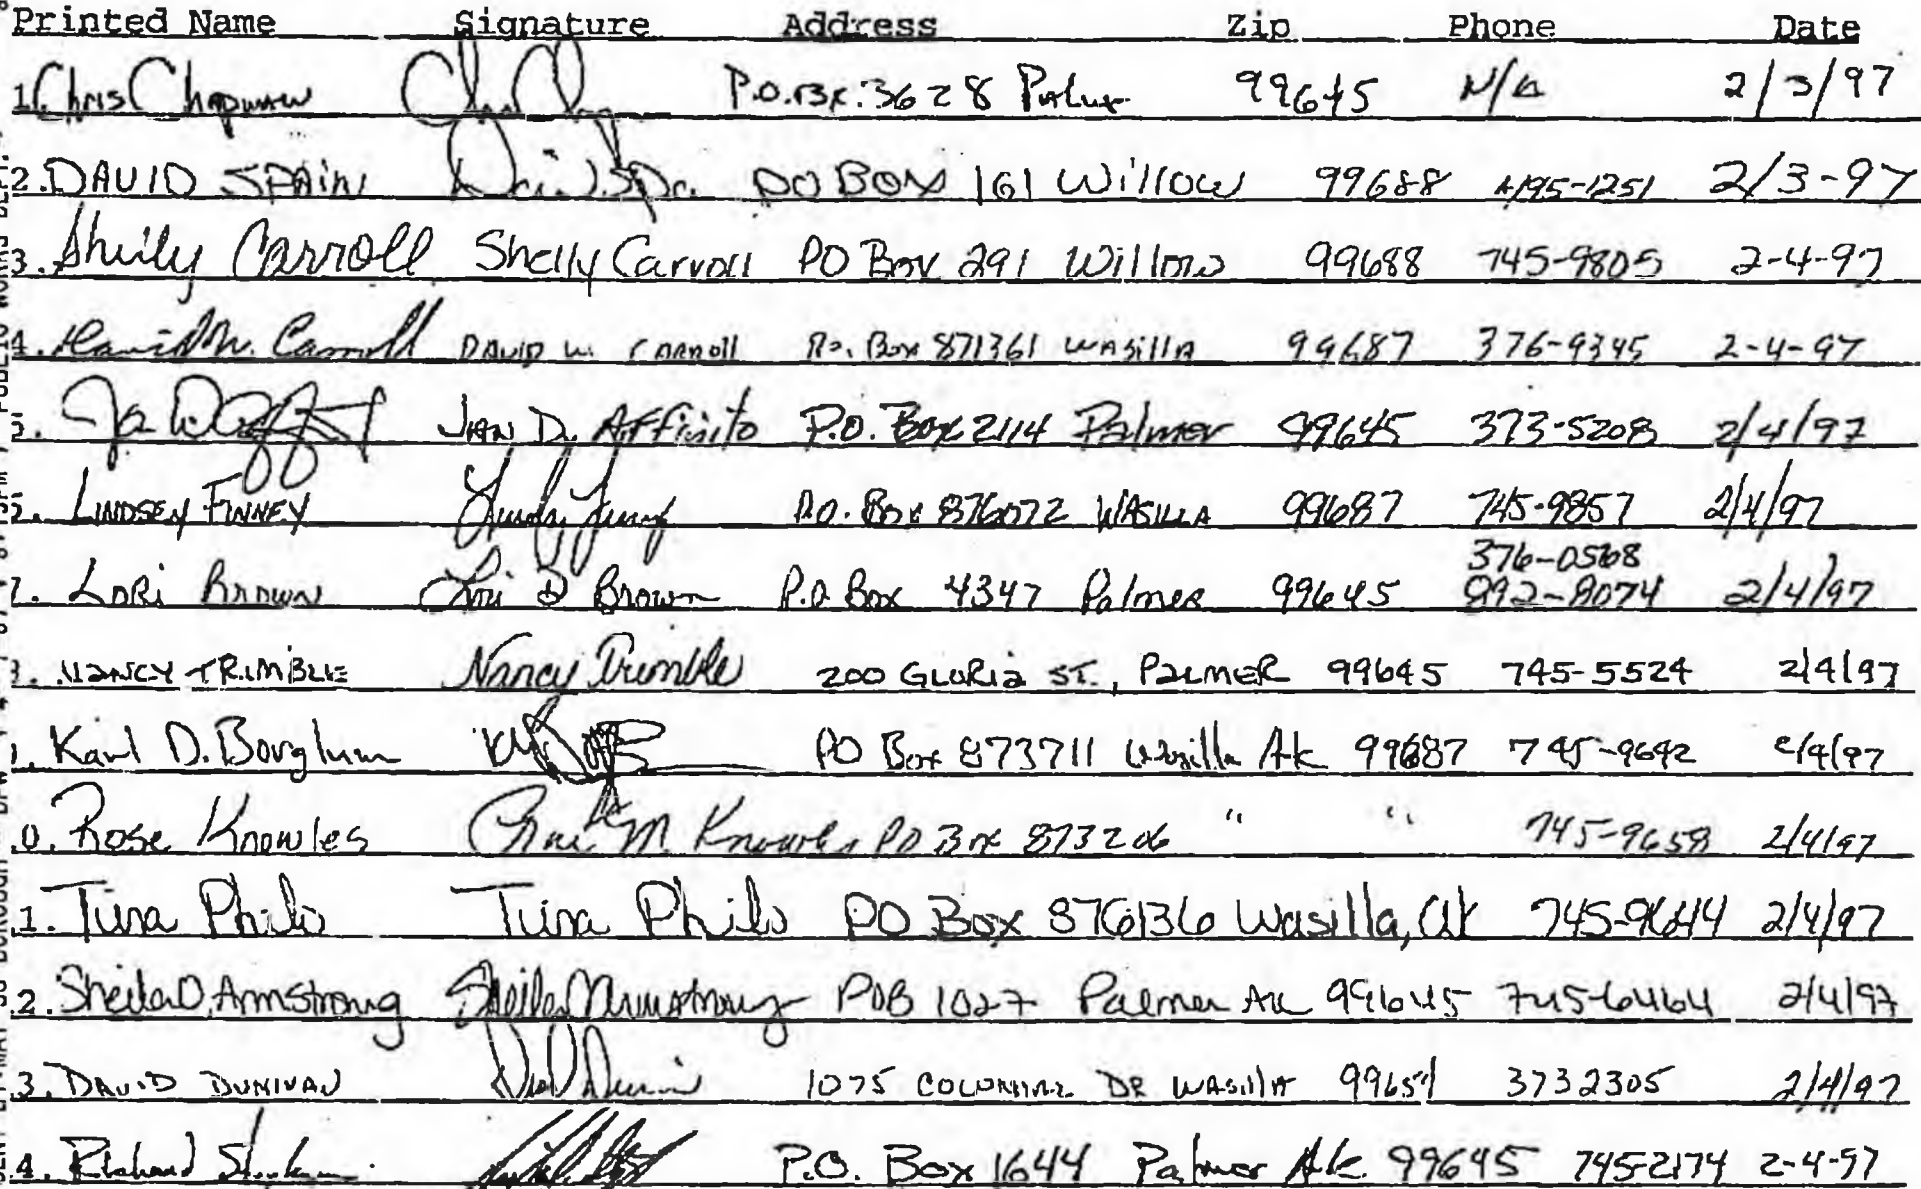 Printed Name Signature Address Zip Phone Date
1. Chris Chapman P.O. Bx. 3628 99645 N/A 2/3/97
2. DAVID SPAIN PO BOX 161 Willow 99688 495-1251 2/3-97
3. Shelly Carroll Shelly Carroll PO Box 291 Willow 99688 745-9805 2-4-97
4. David W. Carroll DAVID W. CARROLL P.O. Box 871361 WASILLA 99687 376-9345 2-4-97
5. JAN D. AFFisito P.O. Box 2114 Palmer 99645 373-5208 2/4/97
LINDSEY FINNEY P.O. Box 876072 WASILLA 99687 745-9857 2/4/97
376-0568
7. LORi Brown Lori D Brown P.O. Box 4347 Palmer 99645 892-8074 2/4/97
NANCY TRIMBLE Nancy Trimble 200 GLORIA ST., PALMER 99645 745-5524 2/4/97
Karl D. Borglum PO Box 873711 Wasilla Ak 99687 745-9642 2/4/97
0. Rose Knowles M. Knowles PO Box 873206 " " 745-9658 2/4/97
1. Tina Philo Tina Philo PO Box 876136 Wasilla, AK 745-9644 2/4/97
2. Sheila D. Armstrong Sheila Armstrong POB 1027 Palmer AK 99645 745-6464 2/4/97
3. DAVID DUNIVAN 1075 DR WASILLA 99654 3732305 2/4/97
4. Richard P.O. Box 1644 Palmer Ak. 99645 745-2174 2-4-97